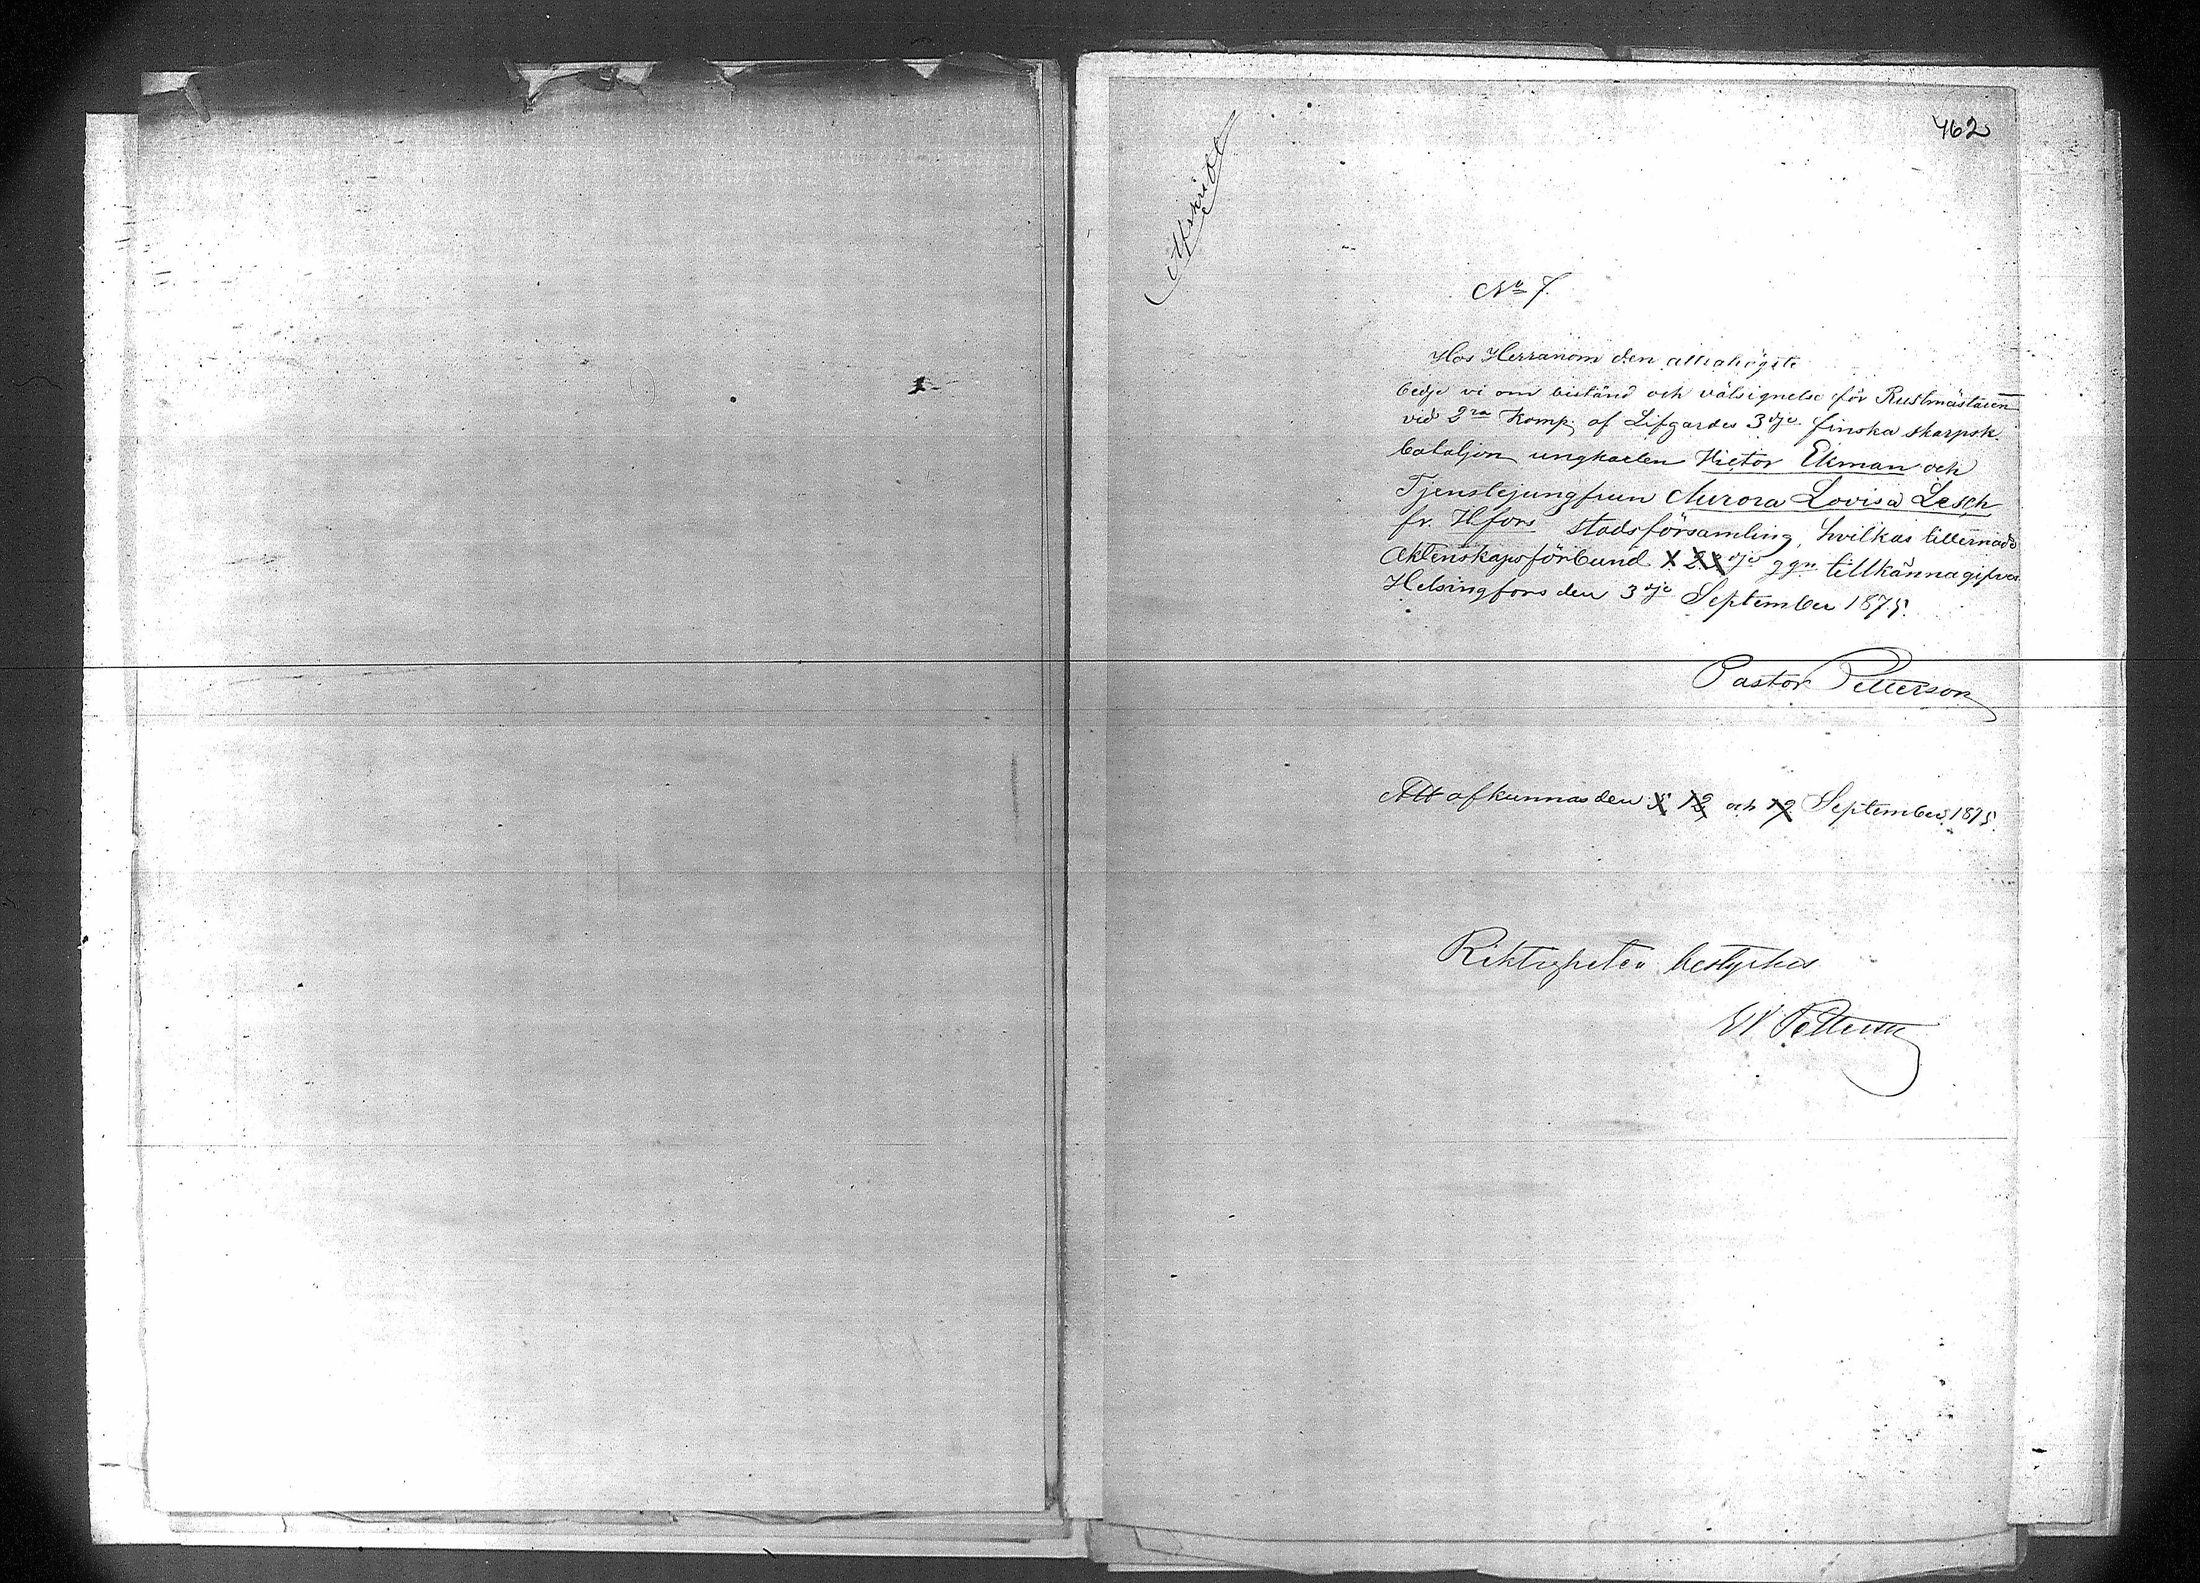 462
Afskrift
No 7.
Hos Herranom den allrahögste
bedje vi om bistånd och välsignelse för Rustmästaren
vid 2ra Komp. af Lifgardes 3dje finska skarpsk.
bataljon ungkarlen Victor Ekman och
Tjenstejungfrun Aurora Lovisa Lesch
fr. Hfors stadsförsamling, hvilkas tillernade
äktenskapsförbund 1 2 3dje ggn tillkännagifves.
Helsingfors den 3dje September 1875.
Pastor Petterson
Att afkunnas den 5 12 och 19 September 1875.
Riktigheten bestyrkes
W Petterson